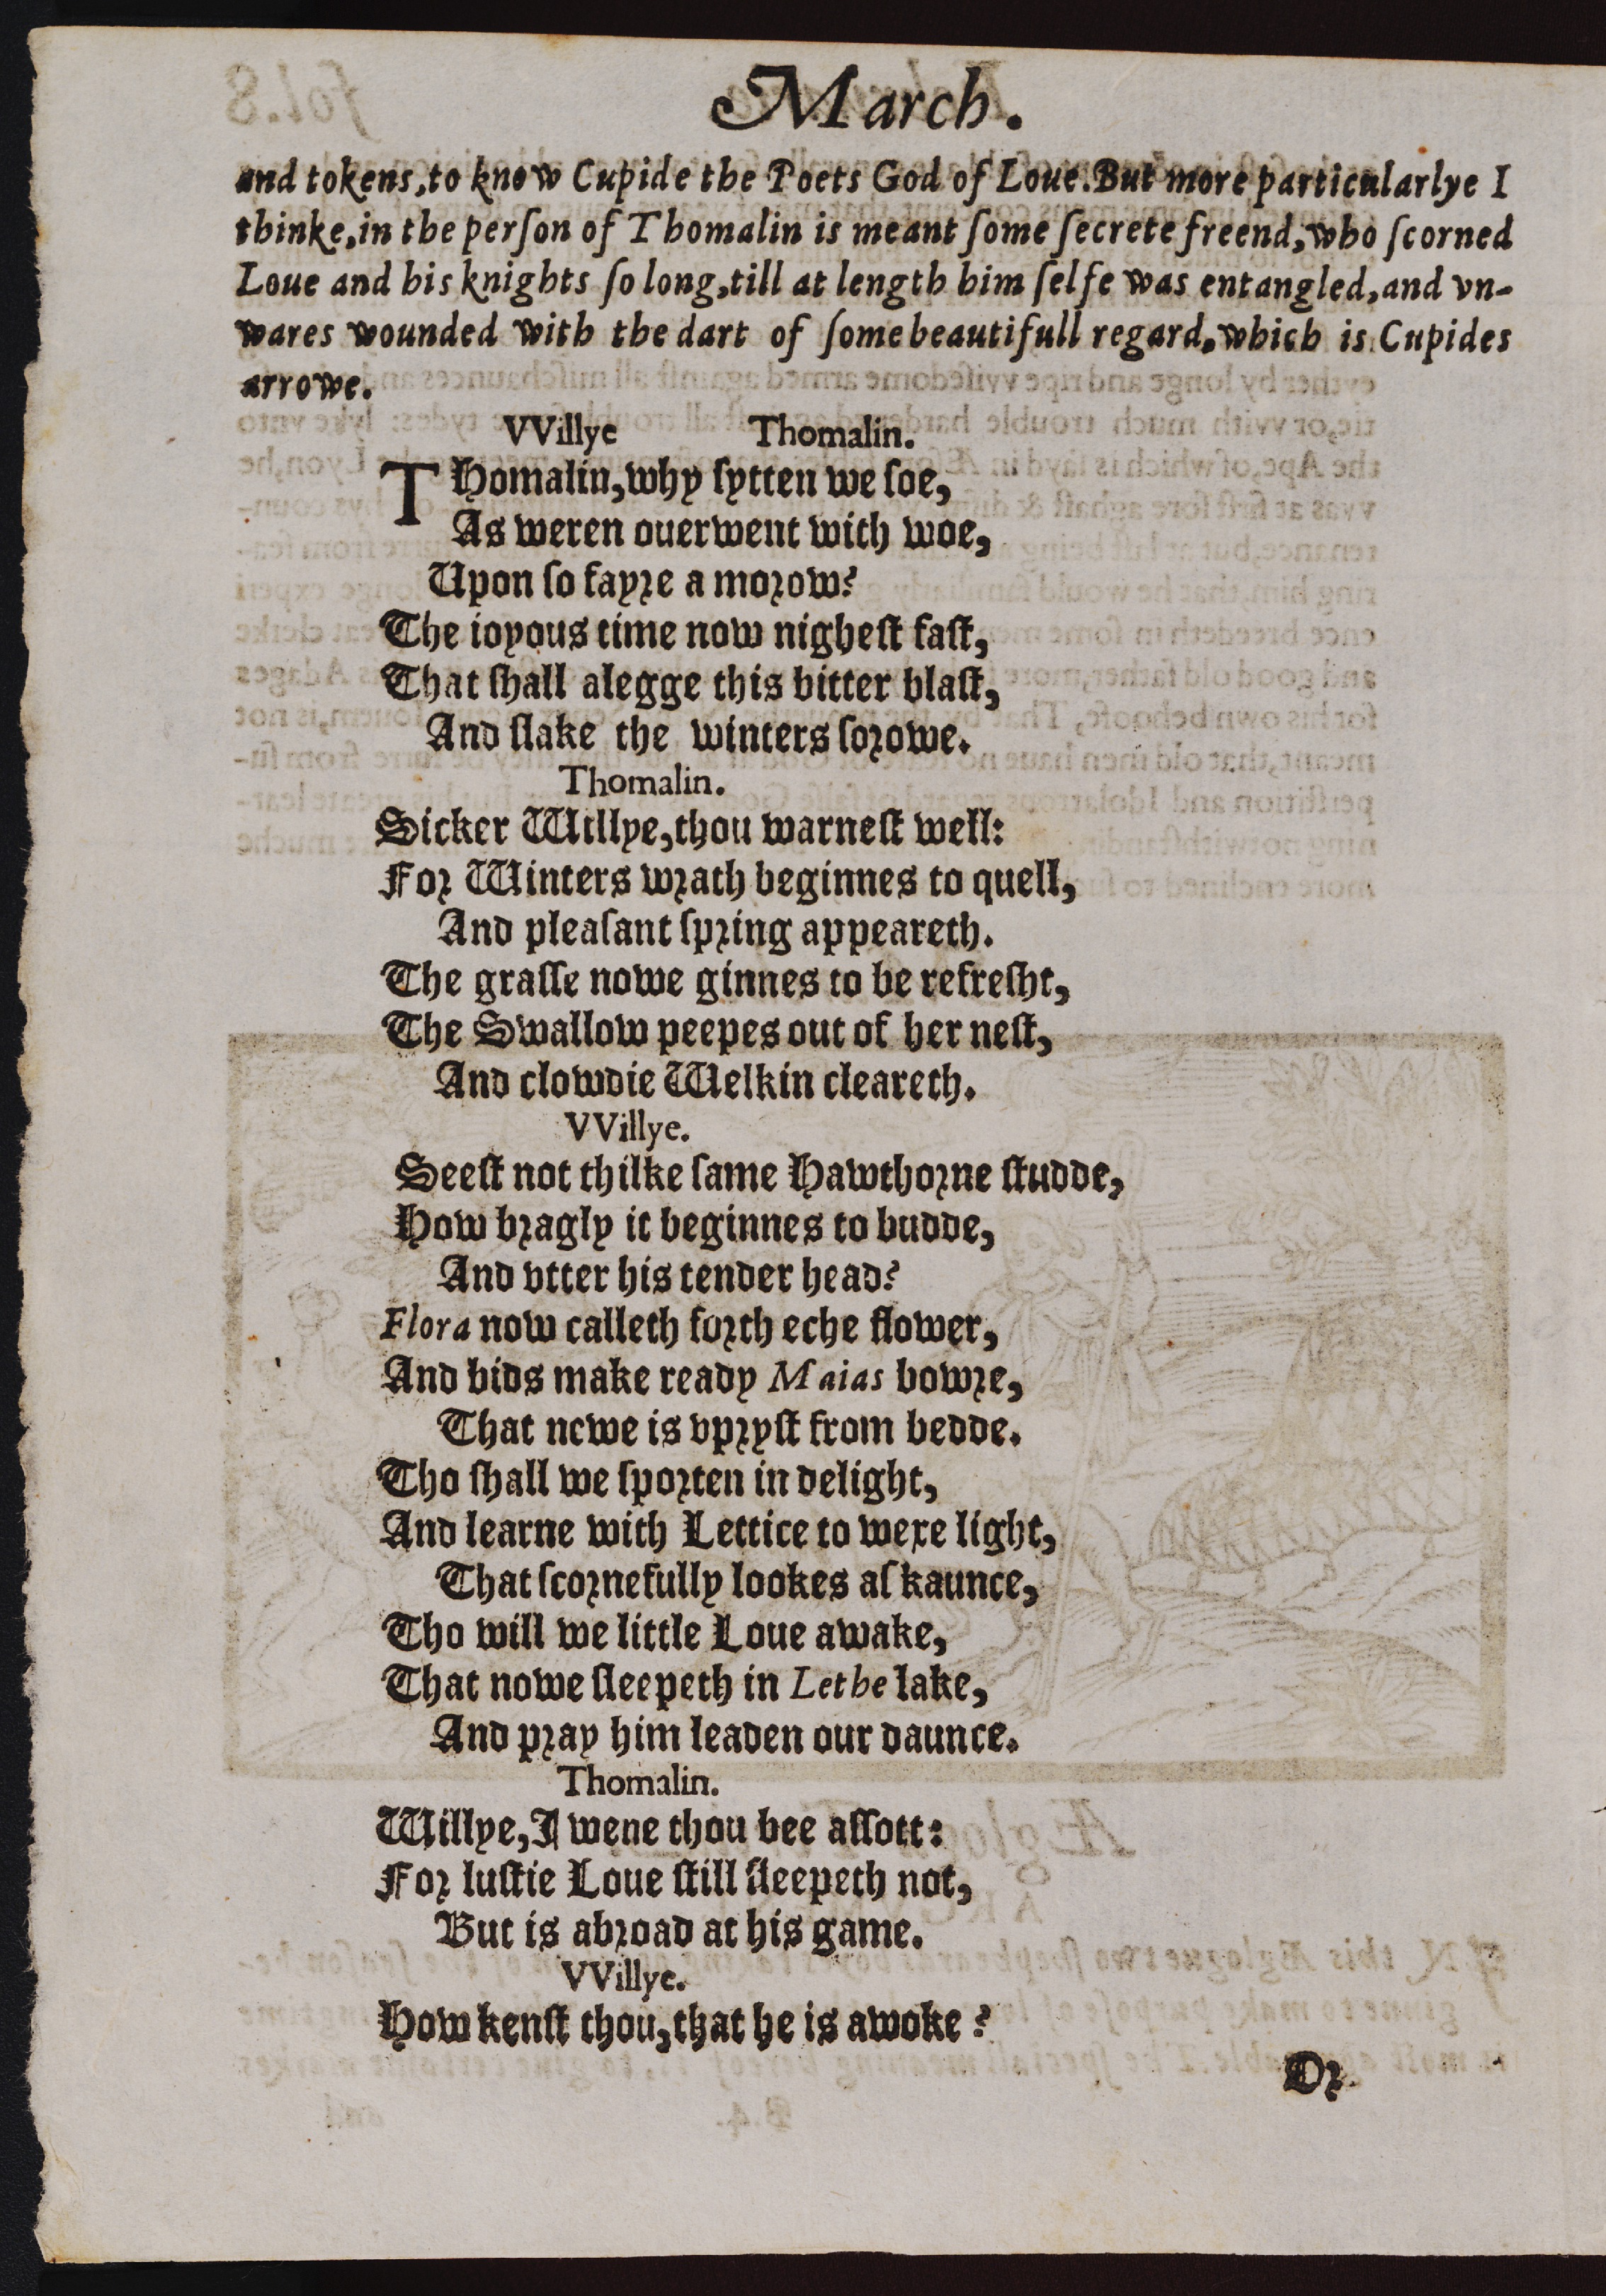 March.
and tokens, to know Cupide the Poets God of Loue. But more particularlye I
thinke, in the perſon of Thomalin is meant ſome ſecrete freend, who ſcorned
Loue and his knights ſo long, till at length him ſelfe was entangled, and vn-
wares wounded with the dart of ſome beautifull regard, which is Cupides
arrowe.
VVillye Thomalin.
THomalin, why ſytten we ſoe,
As weren ouerwent with woe,
Upon ſo fayre a morow?
The ioyous time now nigheſt faſt,
That ſhall alegge this bitter blaſt,
And ſlake the winters ſorowe.
Thomalin.
Sicker Willye, thou warneſt well:
For Winters wrath beginnes to quell,
And pleaſant ſpring appeareth.
The graſſe nowe ginnes to be refreſht,
The Swallow peepes out of her neſt,
And clowdie Welkin cleareth.
VVillye.
Seeſt not thilke ſame Hawthorne ſtudde,
How bragly it beginnes to budde,
And vtter his tender head?
Flora now calleth forth eche flower,
And bids make ready Maias bowre,
That newe is vpryſt from bedde.
Tho ſhall we ſporten in delight,
And learne with Lettice to wexe light,
That ſcornefully lookes aſkaunce,
Tho will we little Loue awake,
That nowe ſleepeth in Lethe lake,
And pray him leaden our daunce.
Thomalin.
Willye, I wene thou bee aſſott:
For luſtie Loue ſtill ſleepeth not,
But is abroad at his game.
VVillye.
How kenſt thou, that he is awoke?
Or